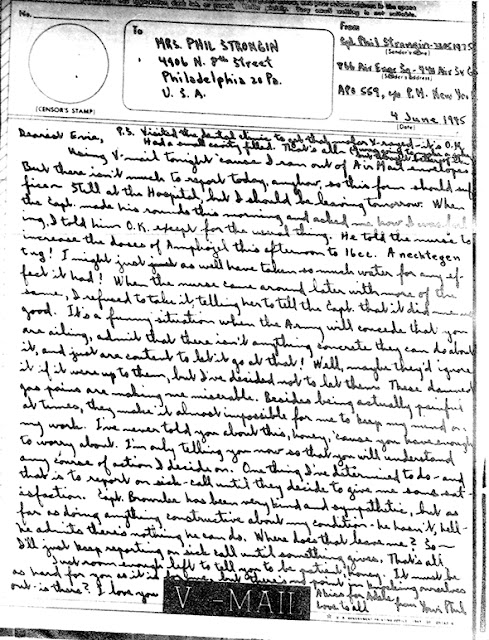 No.
(CENSOR'S STAMP)
To
MRS. PHIL STRONGIN
4906 N. 8th Street
Philadelphia 20 Pa.
U. S. A.
From
Sgt. Phil Strongin
(Sender's name)
(Sender's address)
APO 559, c/o P.M. New York
4 June 1945
(Date)
Dearest Evvie,
P.S. Visited the dental clinic to get that molar X-rayed - it's O.K.
Had a small cavity filled. That's all
Using V-mail tonight 'cause I ran out of Air Mail envelopes
But there isn't much to report today, anyhow, so this form should suf-
fice. Am still at the Hospital, but I should be leaving tomorrow. When
the Capt. made his rounds this morning and asked me how I was feel-
ing, I told him O.K. except for the usual thing. He told the nurse to
increase the doses of Amphojel this afternoon to 16cc. A
I might just as well have taken so much water for any ef-
fect it had! When the nurse came around later with more of the
same, I refused to take it, telling her to tell the Capt. that it did me no
good. It's a funny situation when the Army will concede that you
are ailing, admit that there isn't anything concrete they can do about
it, and just are content to let it go at that! Well, maybe they'd ignore
it if it were up to them, but I've decided not to let them. These damned
gas pains are making me miserable. Besides being actually painful
at times, they make it almost impossible for me to keep my mind on
my work. I've never told you about this, honey, 'cause you have enough
to worry about. I'm only telling you now so that you will understand
any course of action I decide on. One thing I'm determined to do - and
that is to report on sick-call until they decide to give me some sat-
isfaction. Capt. Brownlee has been very kind and sympathetic, but as
far as doing anything constructive about my condition - he hasn't, hell -
he admits there's nothing he can do. Where does that leave me? So -
I'll just keep reporting on sick call until something gives. That's all
Just room enough left to tell you to be patient, honey. It must be
as hard for you as it is for me, but there's no point in ourselves
out - is there? I love you
Kiss for Adele from Your Phil
Love to all
V - MAIL